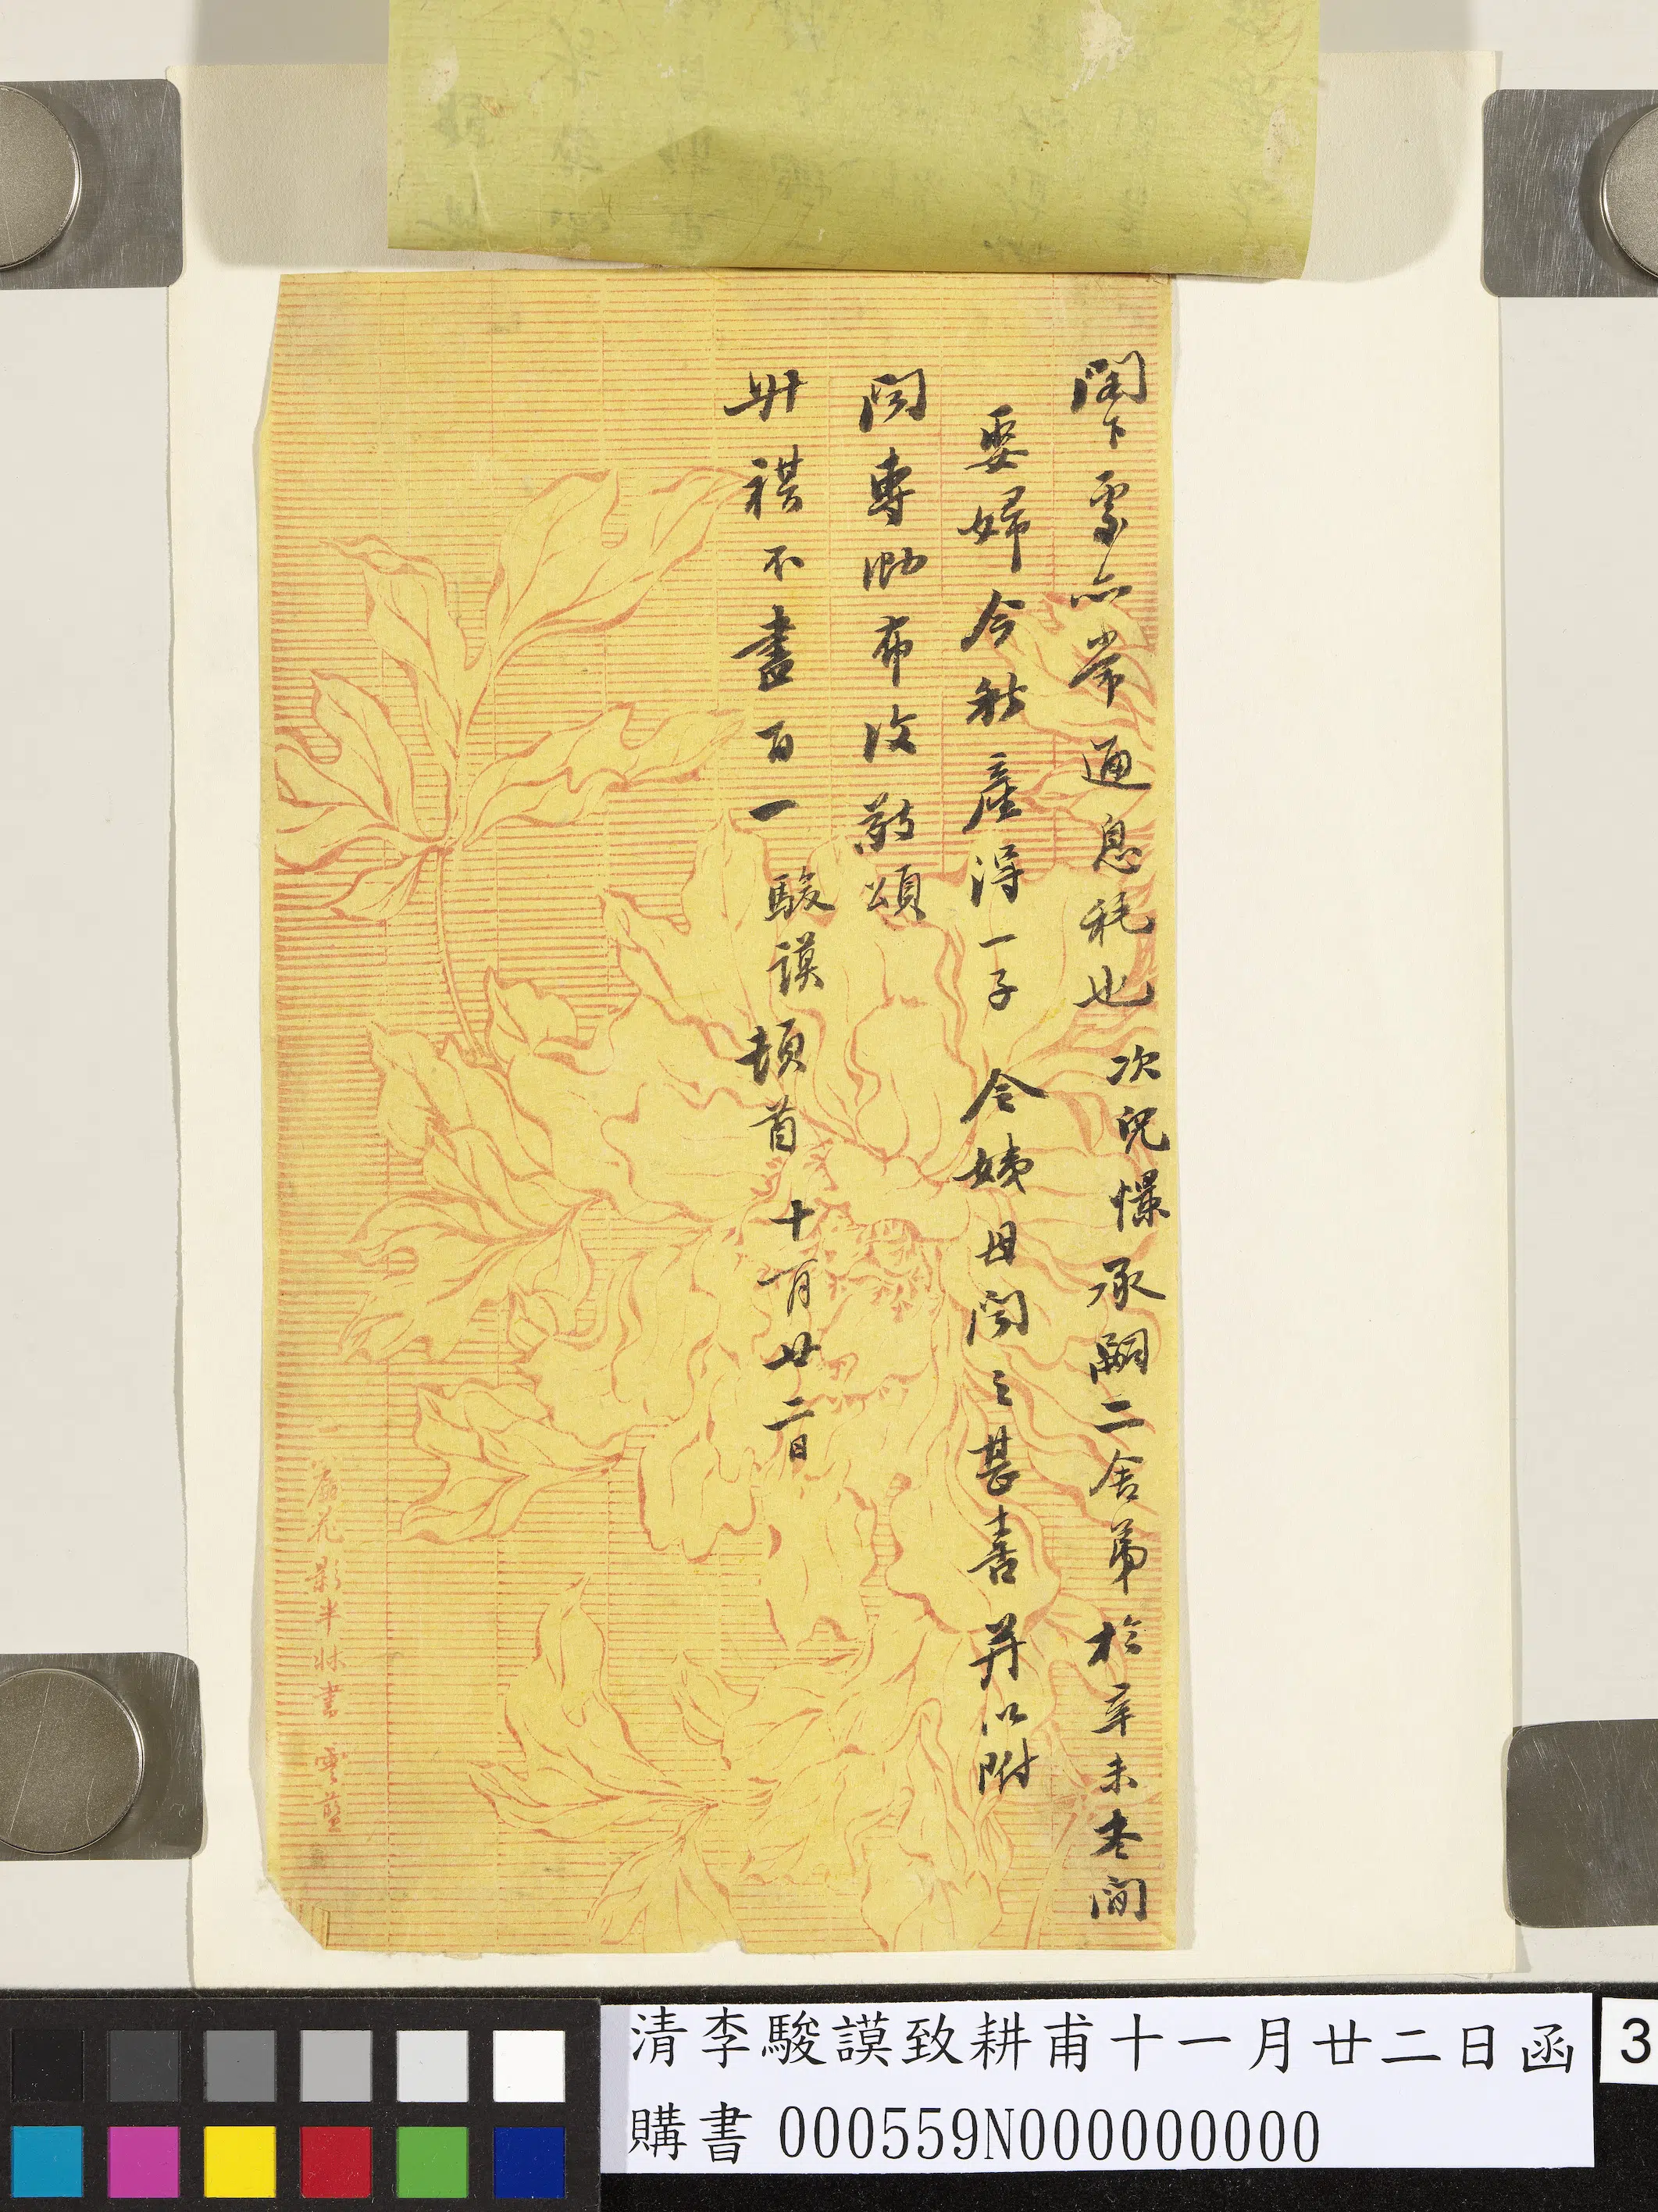 閣下處亦常通息耗也 次兒憬承嗣二舍弟於辛未冬間
娶婦今秋產得一子 令姨母聞之甚喜并以附
聞專泐布復敬頌
升祺不盡百一 駿謨頓首 十一月廿二日
簾花影半牀書 雲藍
清李駿謨致耕甫十一月廿二日函
3
購書 000559N000000000